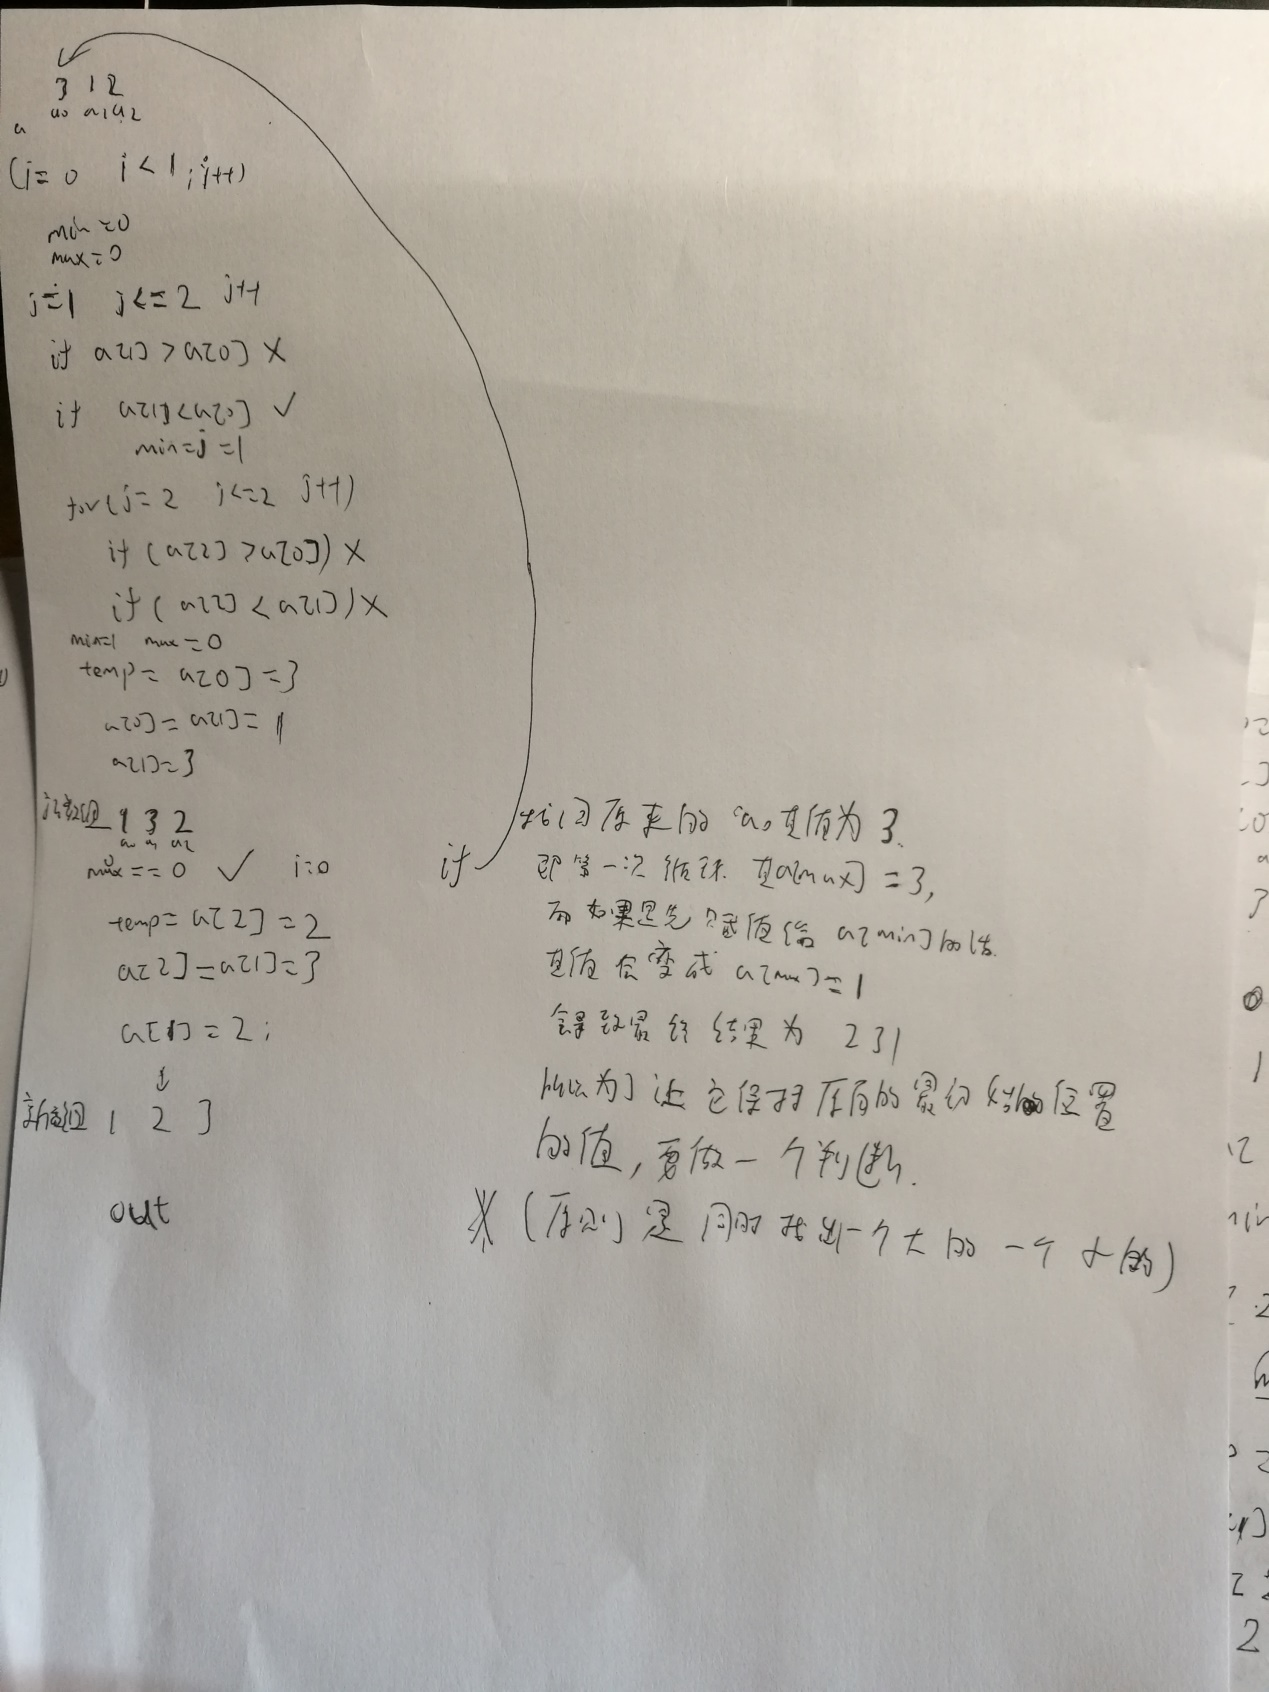 3 1 2
a0 a1 a2
a
(i=0 i<1; i++)
min=0
max=0
j=1 j<=2 j++
if a[1]>a[0] ×
if a[1]<a[0] ✓
min=j=1
for(j=2 j<=2 j++)
if(a[2]>a[0]) ×
if(a[2]<a[1]) ×
min=1 max=0
temp=a[0]=3
a[0]=a[1]=1
a[1]=3
新数组 1 3 2
a0 a1 a2
max==0 ✓ i=0
temp=a[2]=2
a[2]=a[1]=3
a[1]=2;
↓
新数组 1 2 3
out
if 指向原来的 a0 其值为 3.
即第一次循环 其a[max]=3,
而如果是先赋值给 a[min]的话.
其值会变成 a[max]=1
导致最终结果为 231
所以为了让它保持原有的最初始的位置
的值,要做一个判断.
(原则是同时找出一个大的一个小的)
0
1
2
2